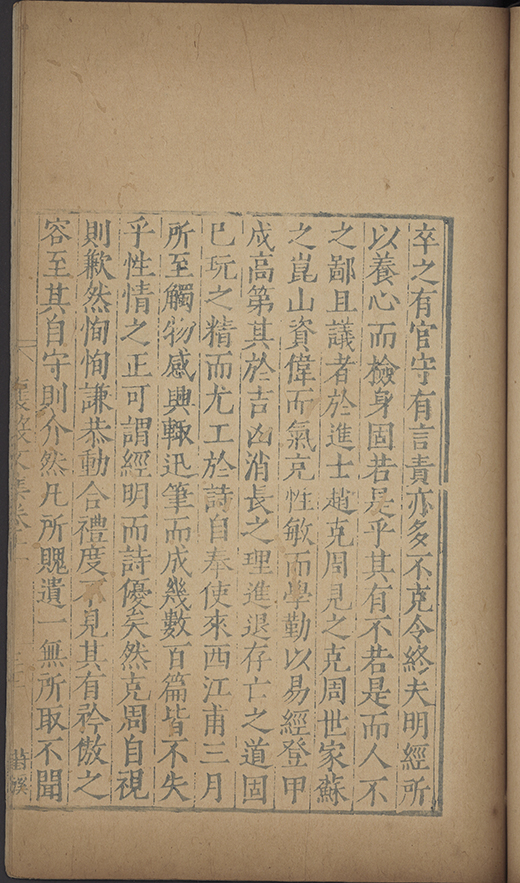 卒之有官守有言責亦多不克令終夫明經所
以養心而檢身固若是乎其有不若是而人不
之鄙且議者於進士趙克周見之克周世家蘇
之崑山資偉而氣充性敏而學勤以易經登甲
成高第其於吉凶消長之理進退存亡之道固
已玩之精而尤工於詩自奉使來西江甫三月
所至觸物感興輒迅筆而成幾數百篇皆不失
乎性情之正可謂經明而詩優矣然克周自視
則歉然恂恂謙恭動合禮度不見其有矜傲之
容至其自守則介然凡所賜遺一無所取不聞
文集卷